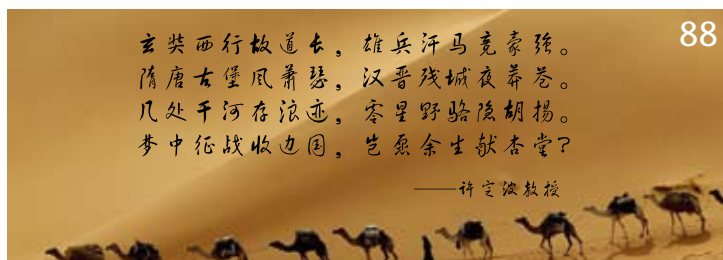 88
玄奘西行故道长，雄兵汗马竞豪强。
隋唐古堡风萧瑟，汉晋残城夜莽苍。
几处干河存浪迹，零星野骆隐胡杨。
梦中征战收边国，岂愿余生献杏堂？
——许定波教授